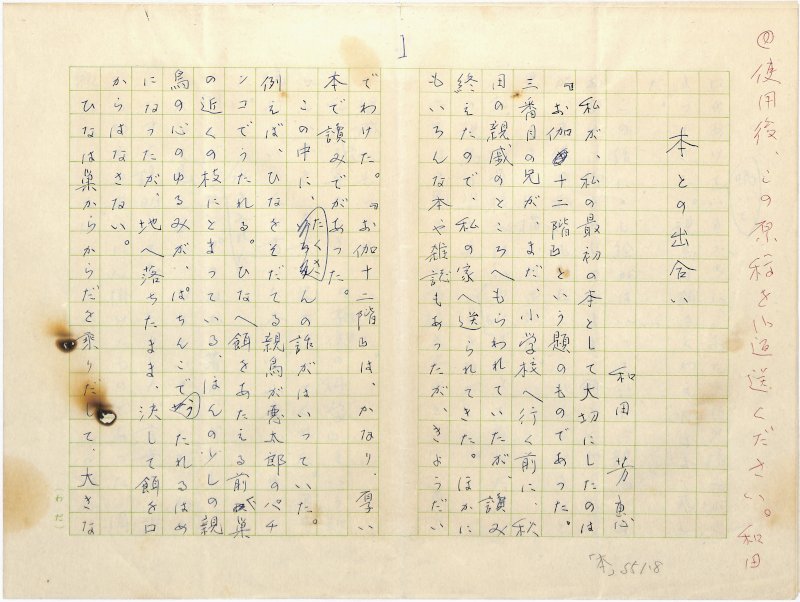 使用後、この原稿を御返送ください。和田
1
本との出合い
和田芳恵
私が、私の最初の本として大切にしたのは
『お伽十二階』という題のものであった。
三番目の兄が、まだ、小学校へ行く前に、秋
田の親戚のところへもらわれていたが、讀み
終えたので、私の家へ送られてきた。ほかに
もいろんな本や雑誌もあったが、きょうだい
でわけた。『お伽十二階』は、かなり、厚い
本で讀みでがあった。
この中に、たくさんの話がはいっていた。
例えば、ひなをそだてる親鳥が悪太郎のパチ
ンコでうたれる。ひなへ餌をあたえる前、巣
の近くの枝にとまっている、ほんの少しの親
鳥の心のゆるみが、ぱちんこでうたれるはめ
になったが、地へ落ちたまま、決して餌を口
からはなさない。
ひなは巣からからだを乗りだして、大きな
わだ
「本」551.8